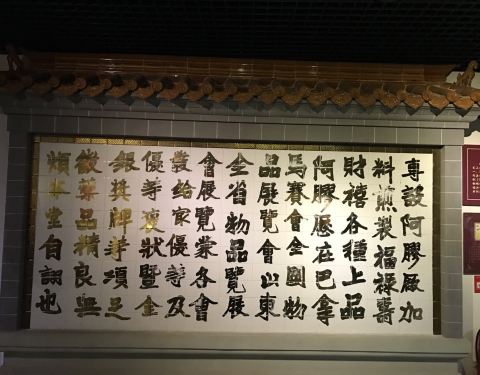 專設阿膠廠加
料煎製福祿壽
財禧各種上品
阿膠歷在巴拿
馬賽會全國物
品展覽會山東
全省物品覽展
會展覽蒙各會
獎給冣優等及
優等獎狀暨金
銀獎牌等項足
徵藥品精良無
煩本堂自詡也